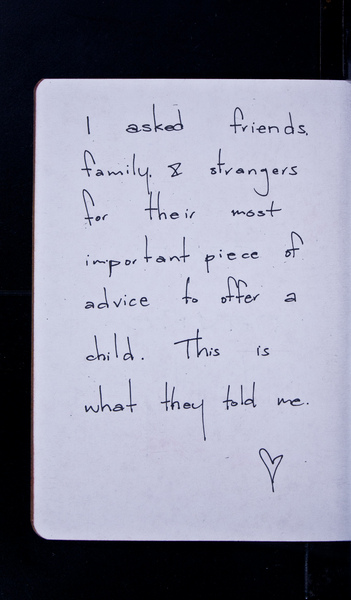 I asked friends,
family, & strangers
for their most
important piece of
advice to offer a
child. This is
what they told me.